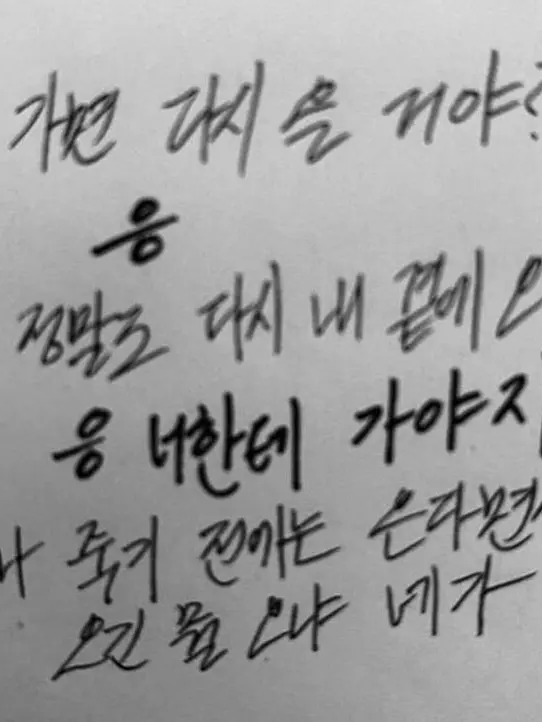 가면 다시 올 거야?
응
정말로 다시 내 곁에
응 너한테 가야지
나 죽기 전에는 온다면
오긴 뭘 오냐 네가